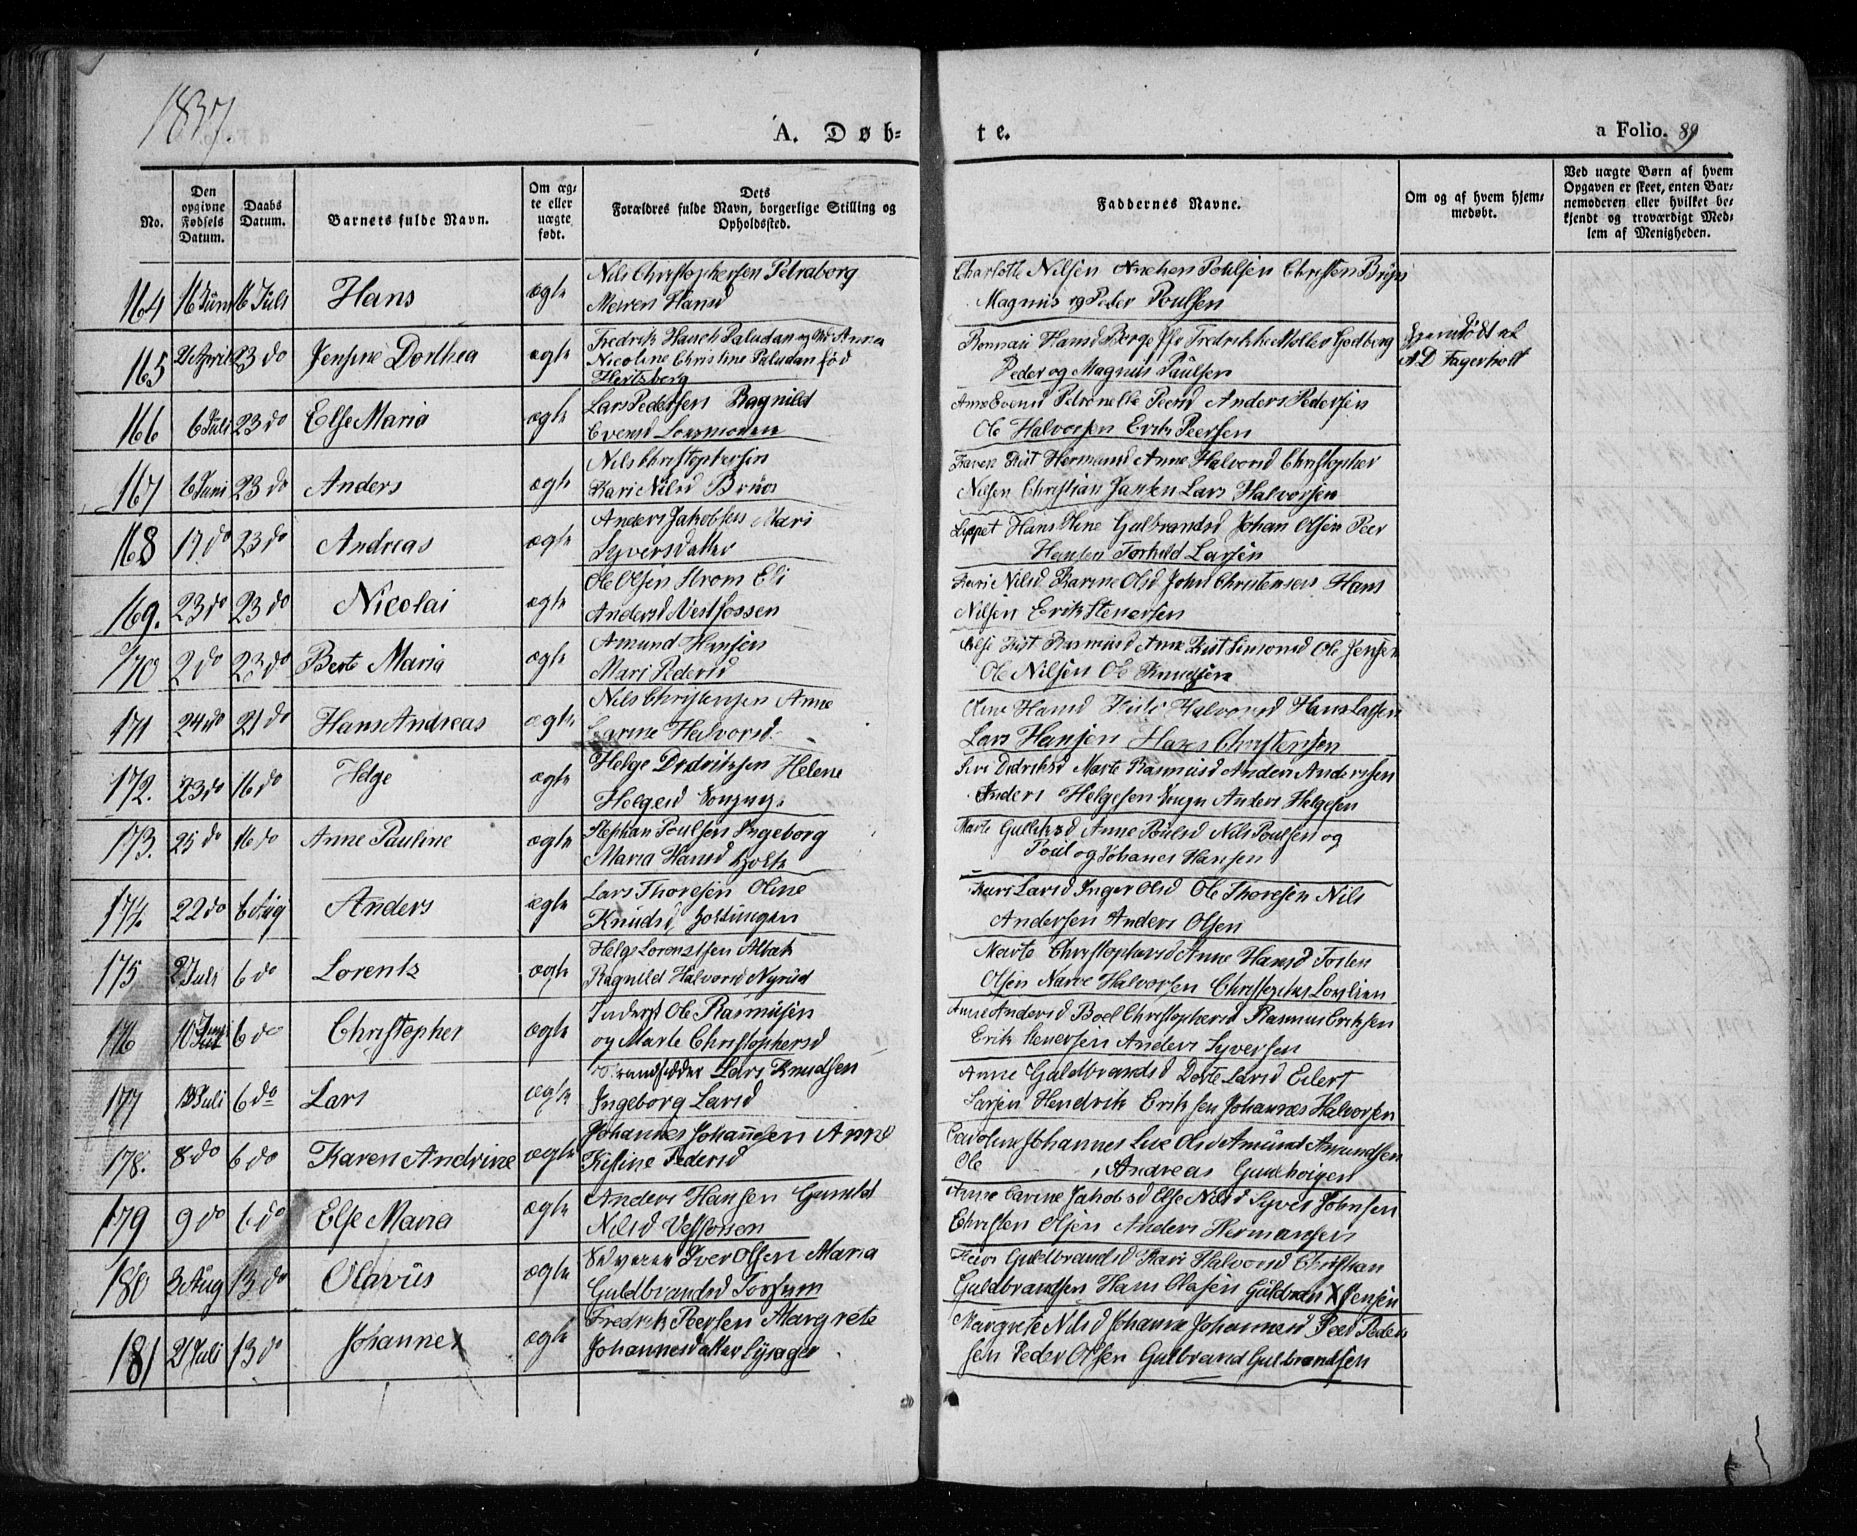 1837.
A. Døb-
te.
a Folio. 89
No.
Den opgivne Fødsels Datum.
Daabs Datum.
Barnets fulde Navn.
Om ægte eller uægte født.
Dets Forældres fulde Navn, borgerlige Stilling og Opholdssted.
Faddernes Navne.
Om og af hvem hjemmedøbt.
Ved uægte Børn af hvem Opgaven er skeet, enten Barnemoderen eller hvilket bekjendt og troværdigt Medlem af Menigheden.
164 16 Juni 16 Juli Hans ægte
Nils Christophersen Petraborg
Maren Hansd
Charlotte Nilsen Anchen Poulsen Christen Bruun
Magnus og Peder Poulsen
165 21 April 23 do Jensine Dorthea ægte
Fredrik Hauch Paludan og Md Anna
Nicoline Christine Paludan fød
Hertzberg
Hansd Borge Fredrikke Møller Godberg
Peder og Magnus Paulsen
Hjemdødt af
A D Fagerholt
166 6 Juli 23 do Else Maria ægte
Lars Pedersen Ragnild
Evensd Loesmoen
Anne Evensd Petronelle Peersd Anders Pedersen
Ole Halvorsen Erik Peersen
167 6 Juni 23 do Anders ægte
Nils Christophersen
Kari Nilsd Bruus
Karen Kist Hermansd Anne Halvorsd Christopher
Nilsen Christian Jansen Lars Halvorsen
168 17 do 23 do Andreas ægte
Anders Jakobsen Mari
Syversdatter
Hans Olene Gulbrandsd Johan Olsen Peer
Hansen Torkild Larsen
169. 23 do 23 do Nicolai ægte
Ole Olsen Strøm Eli
Andersd Vestfossen
Kari Nilsd Karine Olsd John Christensen Hans
Nilsen Erik Stenersen
170 2 do 23 do Berte Maria ægte
Amund Hansen
Mari Pedersd
Else Kist Rasmusd Anne Kist Simonsd Ole Jensen
Ole Nilsen Ole Knudsen
171 24 do 21 do Hans Andreas ægte
Nils Christensen Anne
Carine Halvorsd.
Oline Hansd Halvorsd Hans Larsen
Lars Hansen Hans Christensen
172. 23 do 16 do Helge ægte
Helge Dedriksen Helene
Helgesd
Siri Dedriksd Marte Rasmusd Anders Anderssen
Anders Helgesen Anders Helgesen
173. 25 do 16 do Anne Pauline ægte
Stephan Poulsen Ingeborg
Maria Hansd Holte
Marte Gulliksd Anne Poulsd Nils Poulsen og
Poul og Johanes Hansen
174 22 do 6 Aug Anders ægte
Lars Thoresen Oline
Knudsd
Kari Larsd Inger Olsd Ole Thoresen Nils
Andersen Anders Olsen
175 2 Juli 6 do Lorentz ægte
Helge Lorentsen
Ragnild Halvorsd Nyrud
Marte Christophersd Anne Hansd Torsten
Olsen Narve Halvorsen Christopher Lovlien
176 10 Juni 6 do Christopher ægte
Inderst Ole Rasmusen
og Marte Christophersd
Anne Andersd Boel Christophersd Rasmus Eriksen
Erik Stenersen Anders Syversen
177 13 Juli 6 do Lars ægte
Strandsidder Lars Knudsen
Ingeborg Larsd
Anne Guldbrandsd Dorte Larsd Eilert
Larsen Hendrik Eriksen Johannes Halvorsen
178. 8 do 6 do Karen Andrine ægte
Johannes Johannesen Anne
Kistine Pedersd
Caroline Johannes Lise Olsd Amund Amundsen
Ole Andreas Gundhoigen
179 9 do 6 do Else Maria ægte
Anders Hansen Gunild
Nilsd Vestfossen
Anne Carine Jakobsd Else Nilsd Syver Johnsen
Christen Olsen Anders Hermansen
180 3 Aug 13 do Olavus ægte
Selveier Iver Olsen Maria
Guldbrandsd Fossum
Guldbrandsd Kari Halvorsd Christian
Guldbrandsen Hans Olasen Guldbran Jensen
181 21 Juli 13 do Johannes ægte
Fredrik Peersen Margrete
Johannesdatter Lysager
Margrete Nilsd Johanne Johannesd Peer Peder
sen Peder Olsen Gulbrand Gulbrandsen